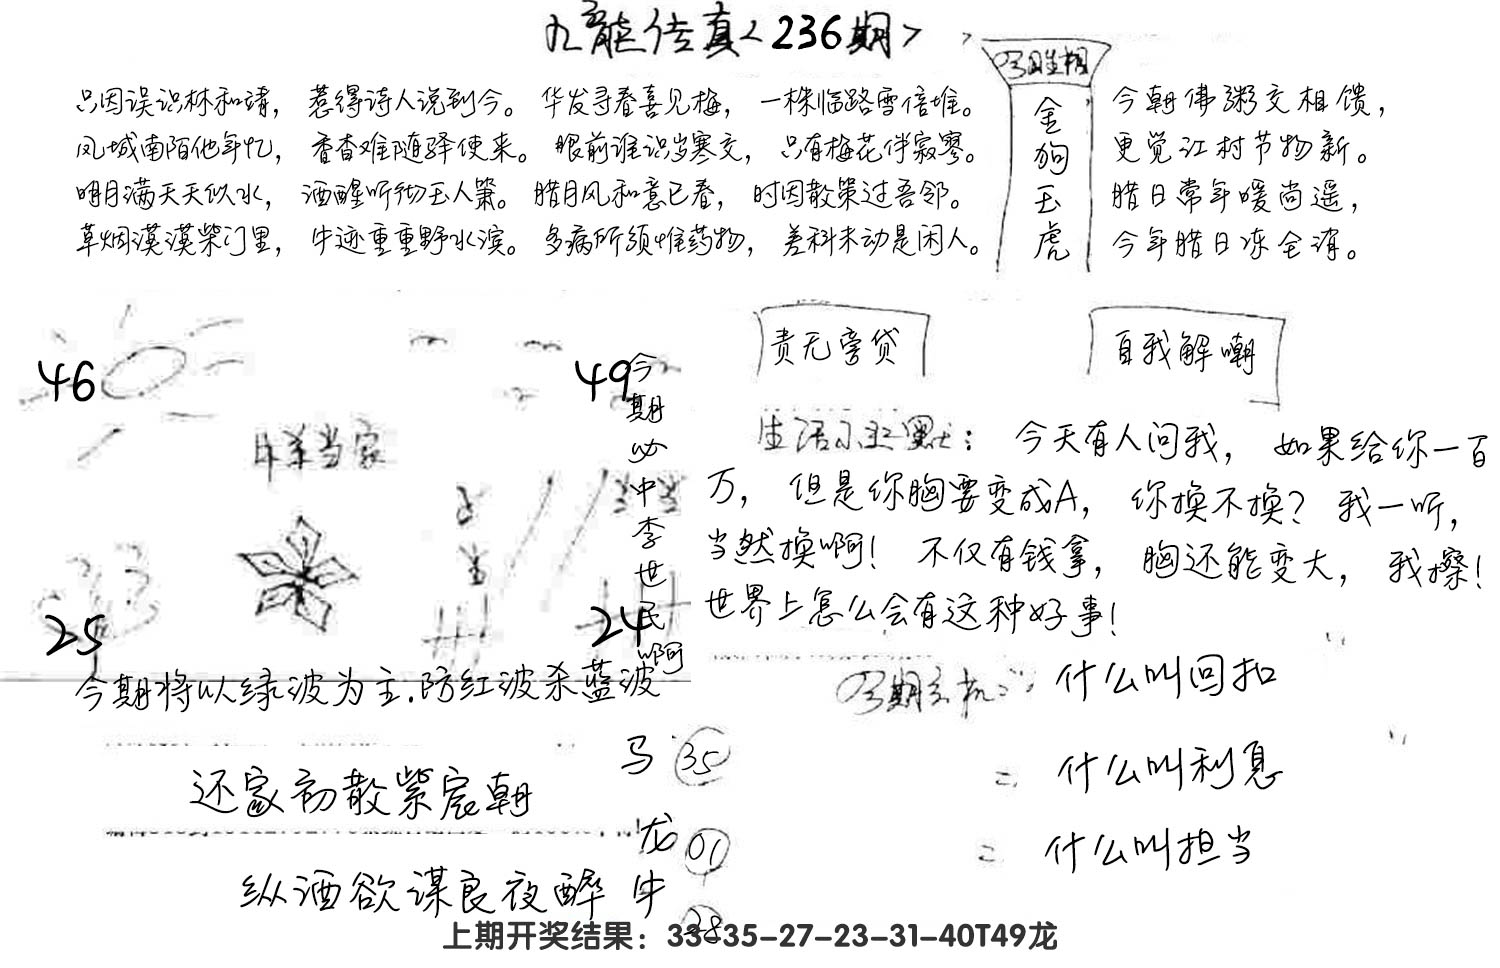 九龙传真<236期>
今日生相
金狗玉虎
只因误识林和靖，惹得诗人说到今。华发寻春喜见梅，一株临路雪倍堆。
凤城南陌他年忆，香杳难随驿使来。眼前谁识岁寒交，只有梅花伴寂寥。
明月满天天似水，酒醒听彻玉人箫。腊月风和意已春，时因散策过吾邻。
草烟漠漠柴门里，牛迹重重野水滨。多病所须惟药物，差科未动是闲人。
今朝佛粥交相馈，
更觉江村节物新。
腊日常年暖尚遥，
今年腊日冻全消。
46
49
25
24
牛羊当家
今期必中李世民啊
今期将以绿波为主.防红波杀蓝波
责无旁贷
自我解嘲
生活小幽默：今天有人问我，如果给你一百
万，但是你胸要变成A，你换不换？我一听，
当然换啊！不仅有钱拿，胸还能变大，我擦！
世界上怎么会有这种好事！
今期玄机：什么叫回扣
二 什么叫利息
二 什么叫担当
还家初散紫宸朝
纵酒欲谋良夜醉
马 35
龙 01
牛 28
上期开奖结果：33-35-27-23-31-40T49龙